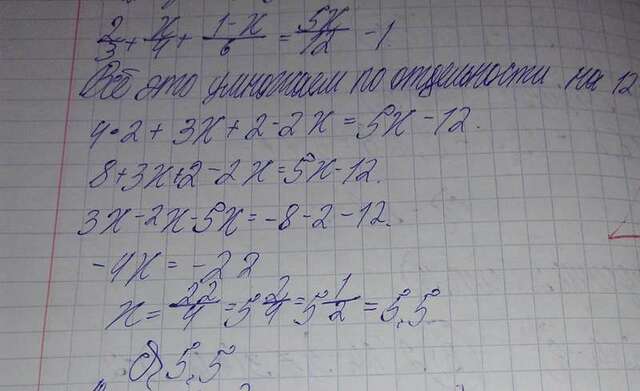 2/3 + x/4 + (1-x)/6 = 5x/12 - 1.
Всё это умножаем по отдельности на 12
4•2 + 3x + 2 - 2x = 5x - 12.
8 + 3x + 2 - 2x = 5x - 12.
3x - 2x - 5x = -8 - 2 - 12.
-4x = -22
x = 22/4 = 5 2/4 = 5 1/2 = 5,5
5,5